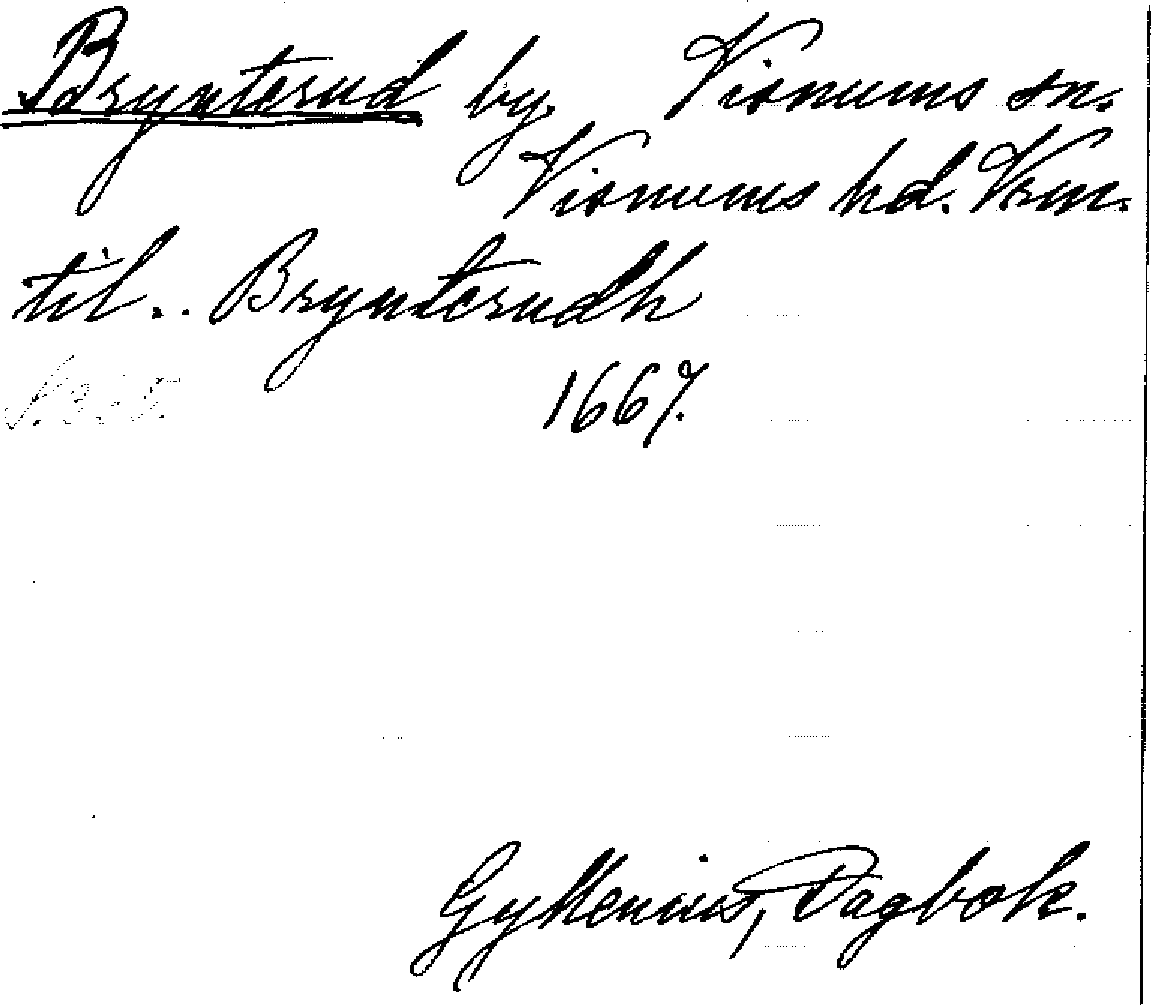 Brynterud by. Visnums sn.
Visnums hd. Vrm.
til.. Brynterudh
S. 265. 1667.
Gyllenius, Dagbok.